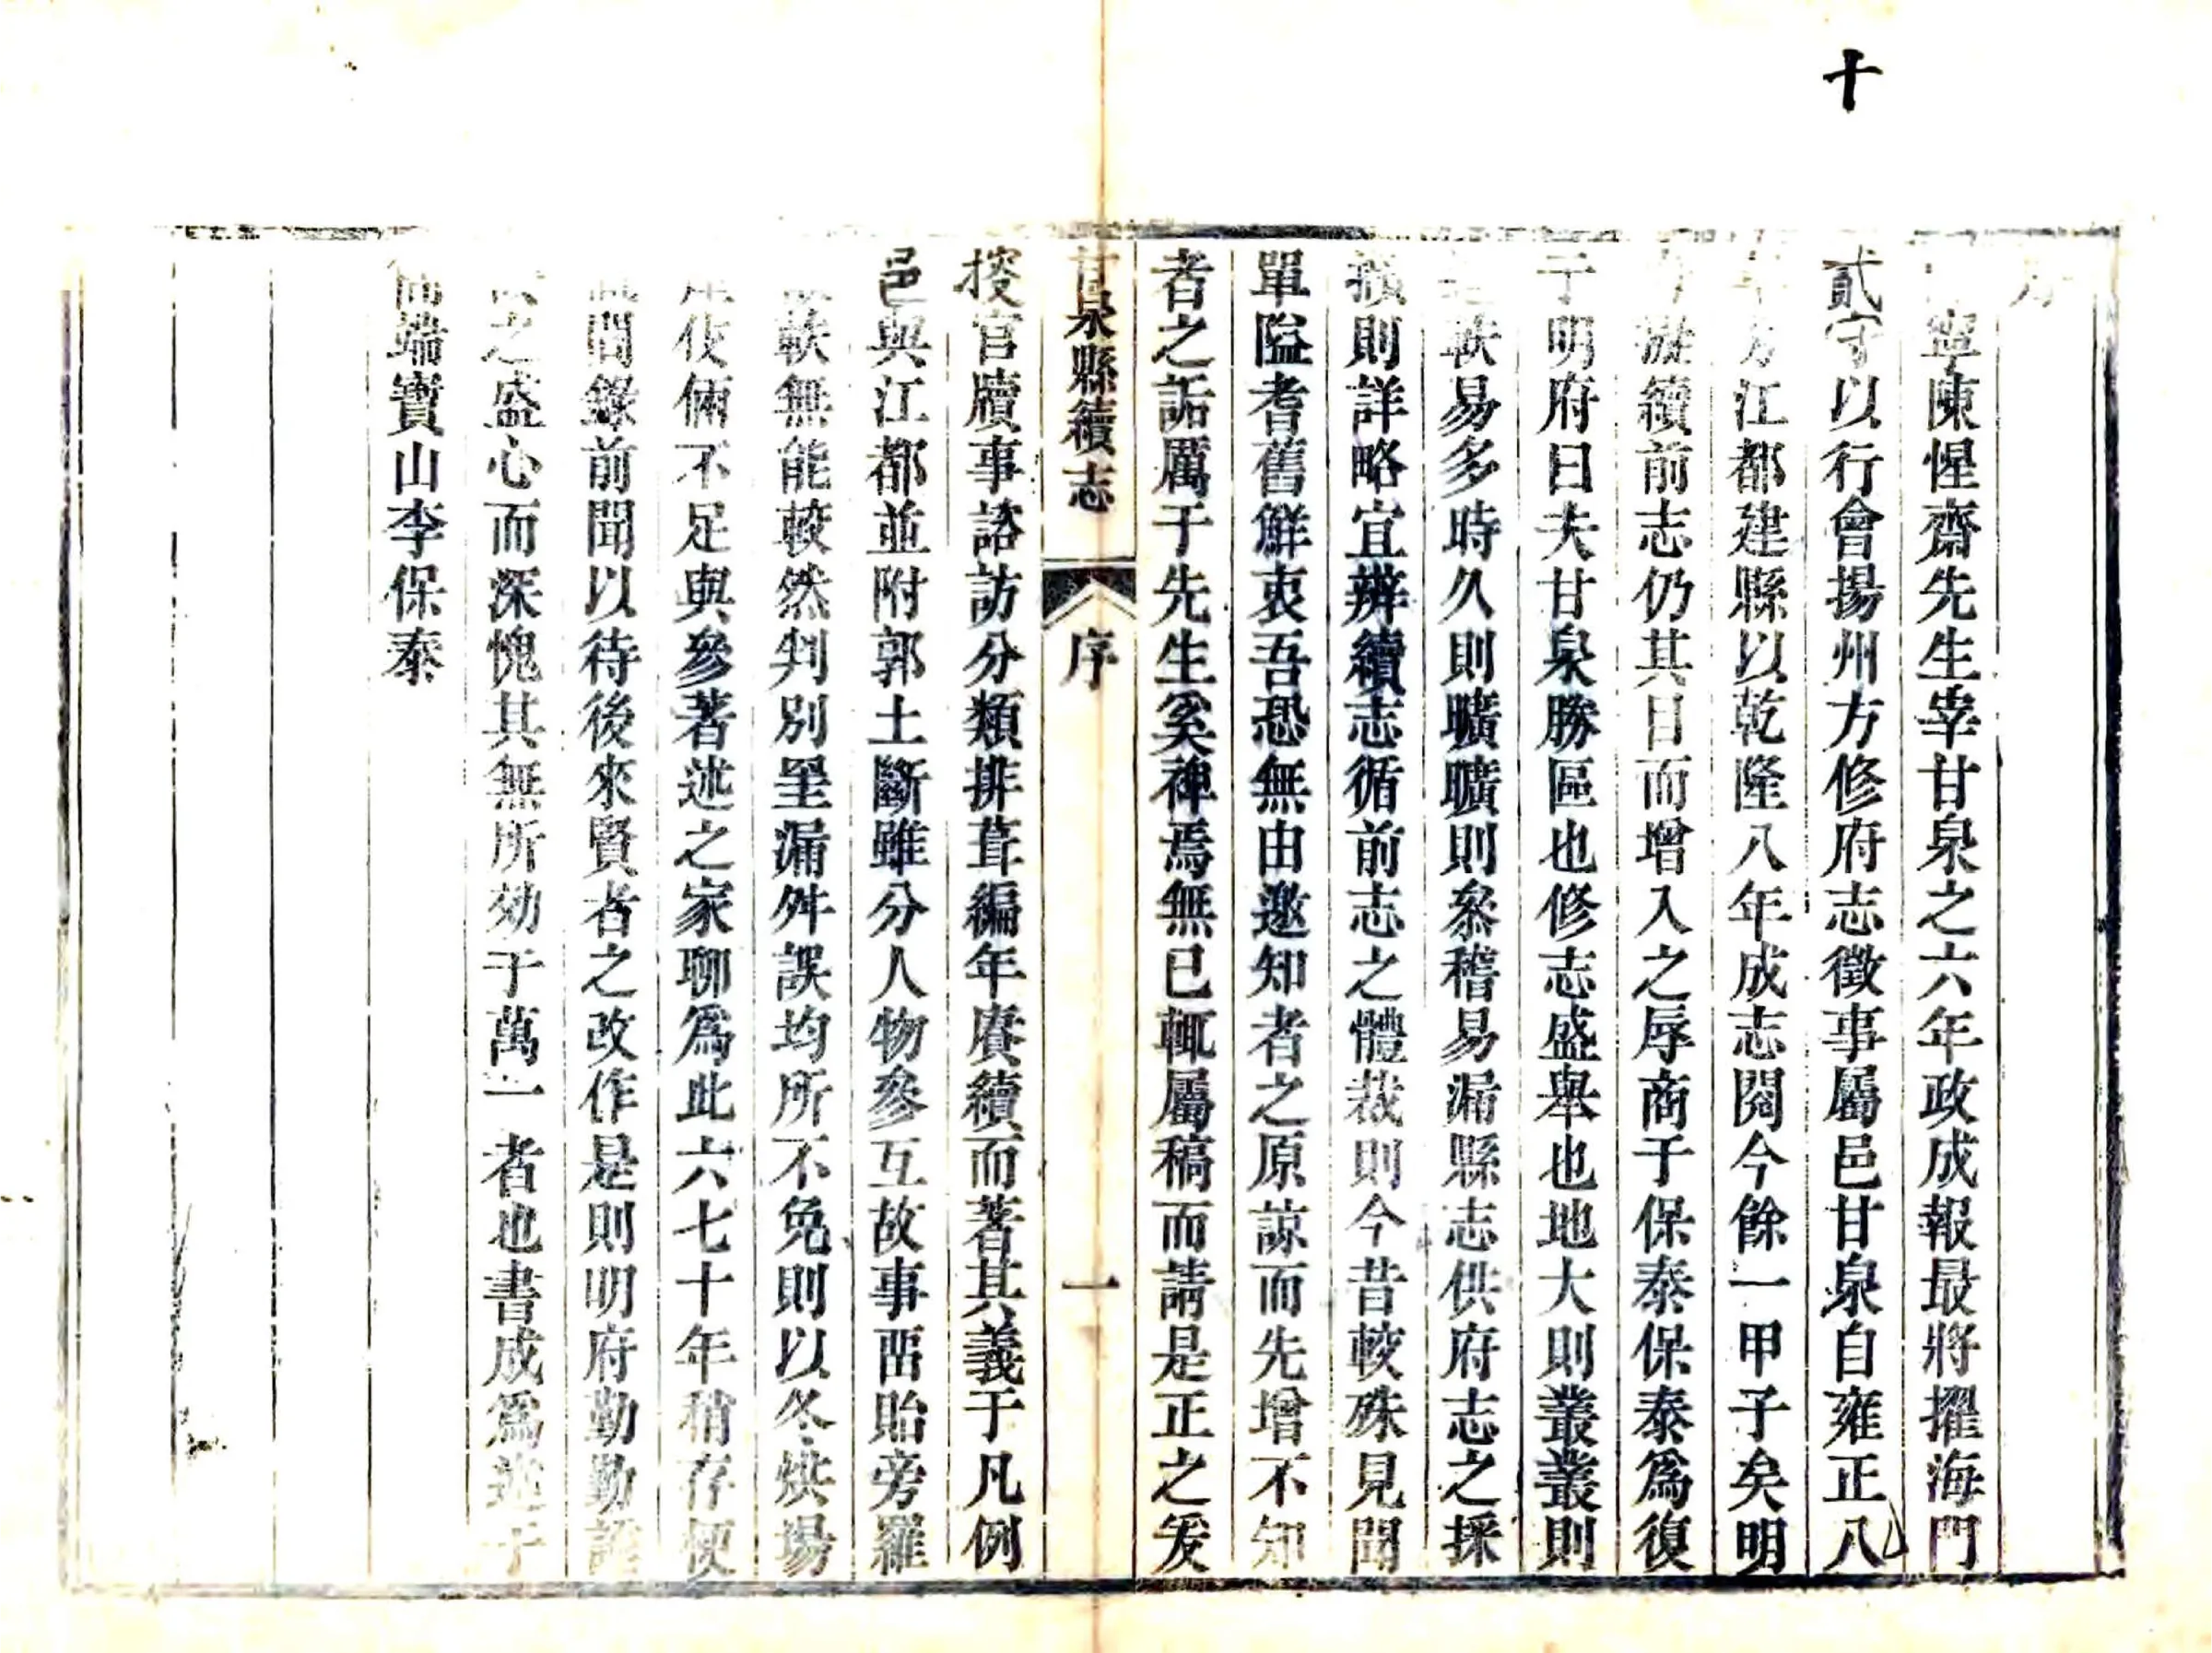 十
序
寧陳惺齋先生宰甘泉之六年政成報最將擢海門
貳守以行會揚州方修府志徵事屬邑甘泉自雍正八
年方江都建縣以乾隆八年成志閱今餘一甲子矣明
續前志仍其目而增入之辱商于保泰保泰為復
于明府曰夫甘泉勝區也修志盛舉也地大則叢叢則
軼易多時久則曠曠則叅稽易漏縣志供府志之採
擷則詳略宜辨續志循前志之體裁則今昔較殊見聞
單隘耆舊鮮衷吾恐無由邀知者之原諒而先增不知
者之詬厲于先生奚裨焉無已輒屬稿而請是正之爰
甘泉縣續志
序
一
按官牘事諮訪分類排葺編年賡續而著其義于凡例
邑與江都並附郭土斷雖分人物參互故事酉貽旁羅
軼無能較然判別罣漏舛誤均所不免則以冬烘場
伎倆不足與參著述之家聊為此六七十年稍存梗
問錄前聞以待後來賢者之改作是則明府勤勤
之盛心而深愧其無所効于萬一者也書成為述于
簡端寶山李保泰